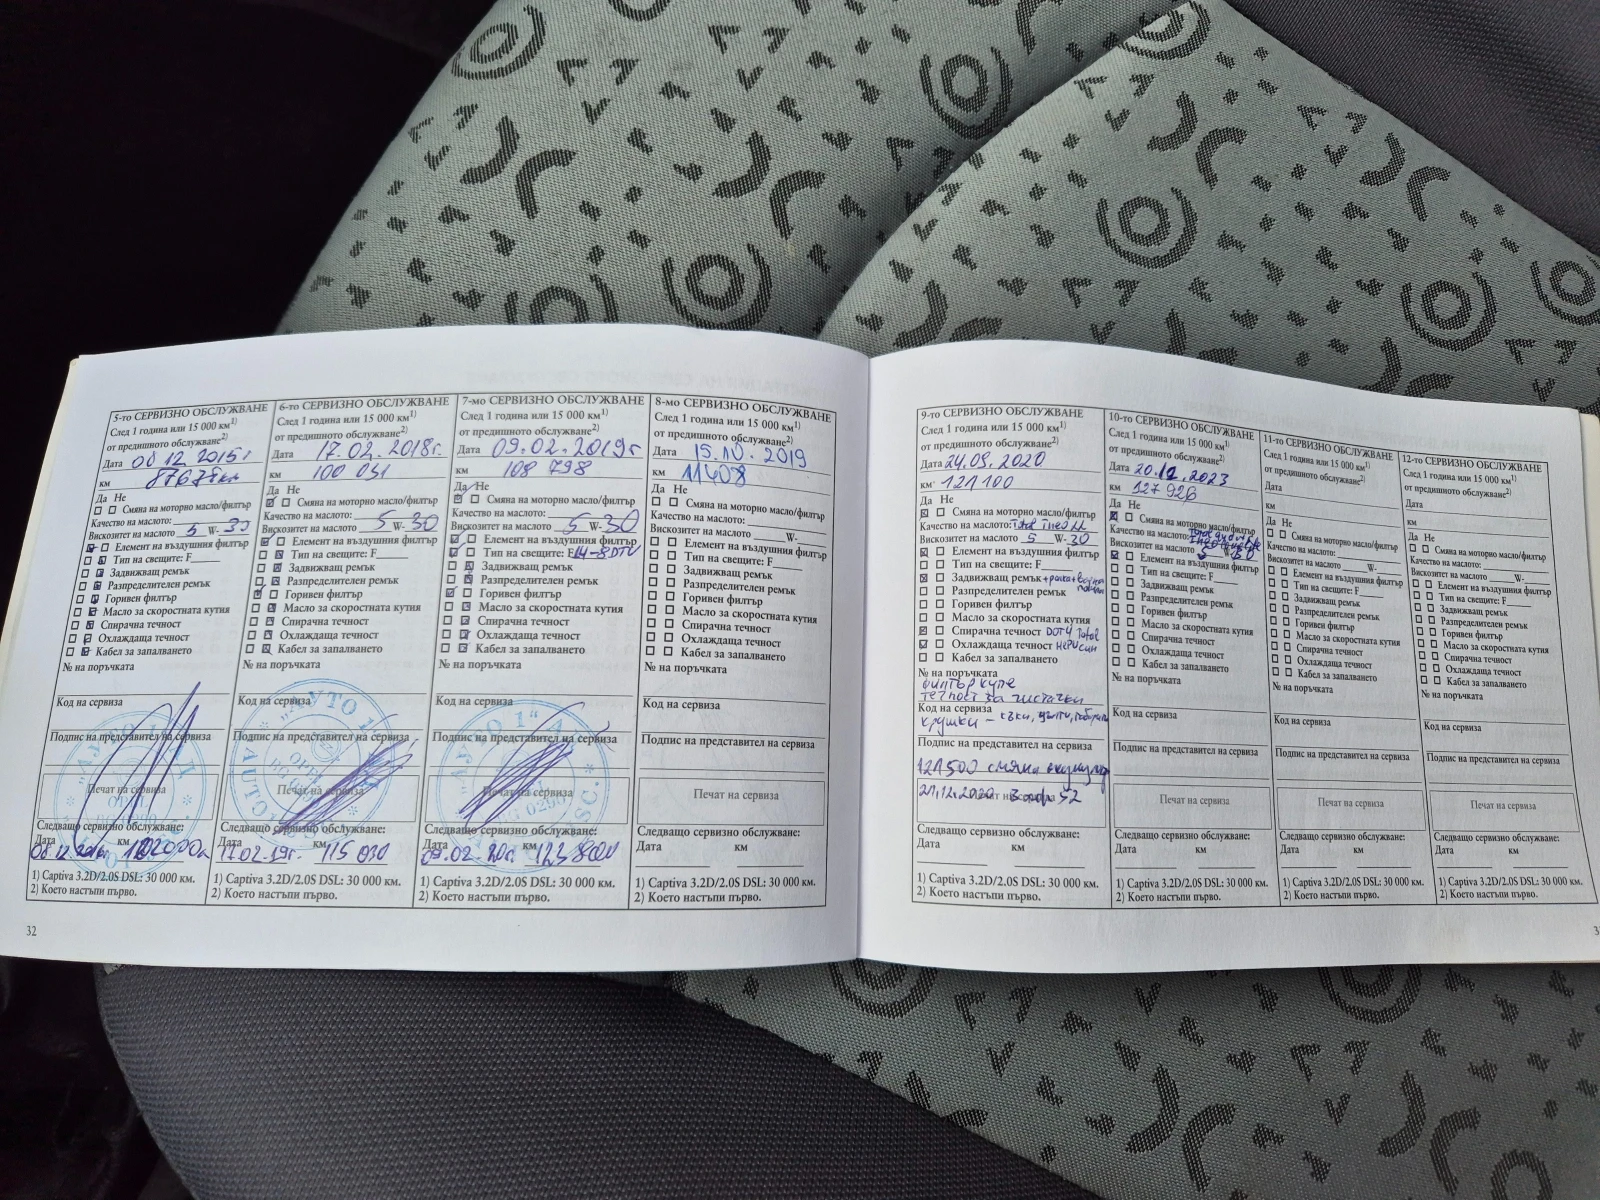 5-то СЕРВИЗНО ОБСЛУЖВАНЕ
След 1 година или 15 000 км1)
от предишното обслужване2)
Дата 06 12 2015г
км 87678км
Да Не
Смяна на моторно масло/филтър
Качество на маслото:
Вискозитет на маслото 5 W- 30
Елемент на въздушния филтър
Тип на свещите: F
Задвижващ ремък
Разпределителен ремък
Горивен филтър
Масло за скоростната кутия
Спирачна течност
Охлаждаща течност
Кабел за запалването
№ на поръчката
Код на сервиза
Подпис на представител на сервиза
Печат на сервиза
Следващо сервизно обслужване:
Дата км
06 12 2016г.
1) Captiva 3.2D/2.0S DSL: 30 000 км.
2) Което настъпи първо.
6-то СЕРВИЗНО ОБСЛУЖВАНЕ
След 1 година или 15 000 км1)
от предишното обслужване2)
Дата 17.02.2018г.
км 100 031
Да Не
Смяна на моторно масло/филтър
Качество на маслото:
Вискозитет на маслото 5 W- 30
Елемент на въздушния филтър
Тип на свещите: F
Задвижващ ремък
Разпределителен ремък
Горивен филтър
Масло за скоростната кутия
Спирачна течност
Охлаждаща течност
Кабел за запалването
№ на поръчката
Код на сервиза
"АУТО 1"
Подпис на представител на сервиза
OPEL
Печат на сервиза
Следващо сервизно обслужване:
Дата км
17.02.19г. 115 030
1) Captiva 3.2D/2.0S DSL: 30 000 км.
2) Което настъпи първо.
7-мо СЕРВИЗНО ОБСЛУЖВАНЕ
След 1 година или 15 000 км1)
от предишното обслужване2)
Дата 09.02.2019г
км 108 798
Да Не
Смяна на моторно масло/филтър
Качество на маслото:
Вискозитет на маслото 5 W- 30
Елемент на въздушния филтър
Тип на свещите: F
Задвижващ ремък
Разпределителен ремък
Горивен филтър
Масло за скоростната кутия
Спирачна течност
Охлаждаща течност
Кабел за запалването
№ на поръчката
Код на сервиза
"АУТО 1"
Подпис на представител на сервиза
Печат на сервиза
Следващо сервизно обслужване:
Дата км
09.02.20г. 123 800
1) Captiva 3.2D/2.0S DSL: 30 000 км.
2) Което настъпи първо.
8-мо СЕРВИЗНО ОБСЛУЖВАНЕ
След 1 година или 15 000 км1)
от предишното обслужване2)
Дата 15.10.2019
км 11408
Да Не
Смяна на моторно масло/филтър
Качество на маслото:
Вискозитет на маслото W-
Елемент на въздушния филтър
Тип на свещите: F
Задвижващ ремък
Разпределителен ремък
Горивен филтър
Масло за скоростната кутия
Спирачна течност
Охлаждаща течност
Кабел за запалването
№ на поръчката
Код на сервиза
Подпис на представител на сервиза
Печат на сервиза
Следващо сервизно обслужване:
Дата км
1) Captiva 3.2D/2.0S DSL: 30 000 км.
2) Което настъпи първо.
32
9-то СЕРВИЗНО ОБСЛУЖВАНЕ
След 1 година или 15 000 км1)
от предишното обслужване2)
Дата 24.09.2020
км 121100
Да Не
Смяна на моторно масло/филтър
Качество на маслото: Total ineo
Вискозитет на маслото 5 W- 30
Елемент на въздушния филтър
Тип на свещите: F
Задвижващ ремък + ролка + водна помпа
Разпределителен ремък
Горивен филтър
Масло за скоростната кутия
Спирачна течност DOT4 Total
Охлаждаща течност
Кабел за запалването
№ на поръчката
филтър купе
течност за чистачки
Код на сервиза
крушки – къси, дълги, габарити
Подпис на представител на сервиза
121500 смяна акумулатор
21.12.2020
Печат на сервиза
Следващо сервизно обслужване:
Дата км
1) Captiva 3.2D/2.0S DSL: 30 000 км.
2) Което настъпи първо.
10-то СЕРВИЗНО ОБСЛУЖВАНЕ
След 1 година или 15 000 км1)
от предишното обслужване2)
Дата 20.12.2023
км 127 926
Да Не
Смяна на моторно масло/филтър
Качество на маслото:
Вискозитет на маслото 5 W- 30
Елемент на въздушния филтър
Тип на свещите: F
Задвижващ ремък
Разпределителен ремък
Горивен филтър
Масло за скоростната кутия
Спирачна течност
Охлаждаща течност
Кабел за запалването
№ на поръчката
Код на сервиза
Подпис на представител на сервиза
Печат на сервиза
Следващо сервизно обслужване:
Дата км
1) Captiva 3.2D/2.0S DSL: 30 000 км.
2) Което настъпи първо.
11-то СЕРВИЗНО ОБСЛУЖВАНЕ
След 1 година или 15 000 км1)
от предишното обслужване2)
Дата
км
Да Не
Смяна на моторно масло/филтър
Качество на маслото:
Вискозитет на маслото W-
Елемент на въздушния филтър
Тип на свещите: F
Задвижващ ремък
Разпределителен ремък
Горивен филтър
Масло за скоростната кутия
Спирачна течност
Охлаждаща течност
Кабел за запалването
№ на поръчката
Код на сервиза
Подпис на представител на сервиза
Печат на сервиза
Следващо сервизно обслужване:
Дата км
1) Captiva 3.2D/2.0S DSL: 30 000 км.
2) Което настъпи първо.
12-то СЕРВИЗНО ОБСЛУЖВАНЕ
След 1 година или 15 000 км1)
от предишното обслужване2)
Дата
км
Да Не
Смяна на моторно масло/филтър
Качество на маслото:
Вискозитет на маслото W-
Елемент на въздушния филтър
Тип на свещите: F
Задвижващ ремък
Разпределителен ремък
Горивен филтър
Масло за скоростната кутия
Спирачна течност
Охлаждаща течност
Кабел за запалването
№ на поръчката
Код на сервиза
Подпис на представител на сервиза
Печат на сервиза
Следващо сервизно обслужване:
Дата км
1) Captiva 3.2D/2.0S DSL: 30 000 км.
2) Което настъпи първо.